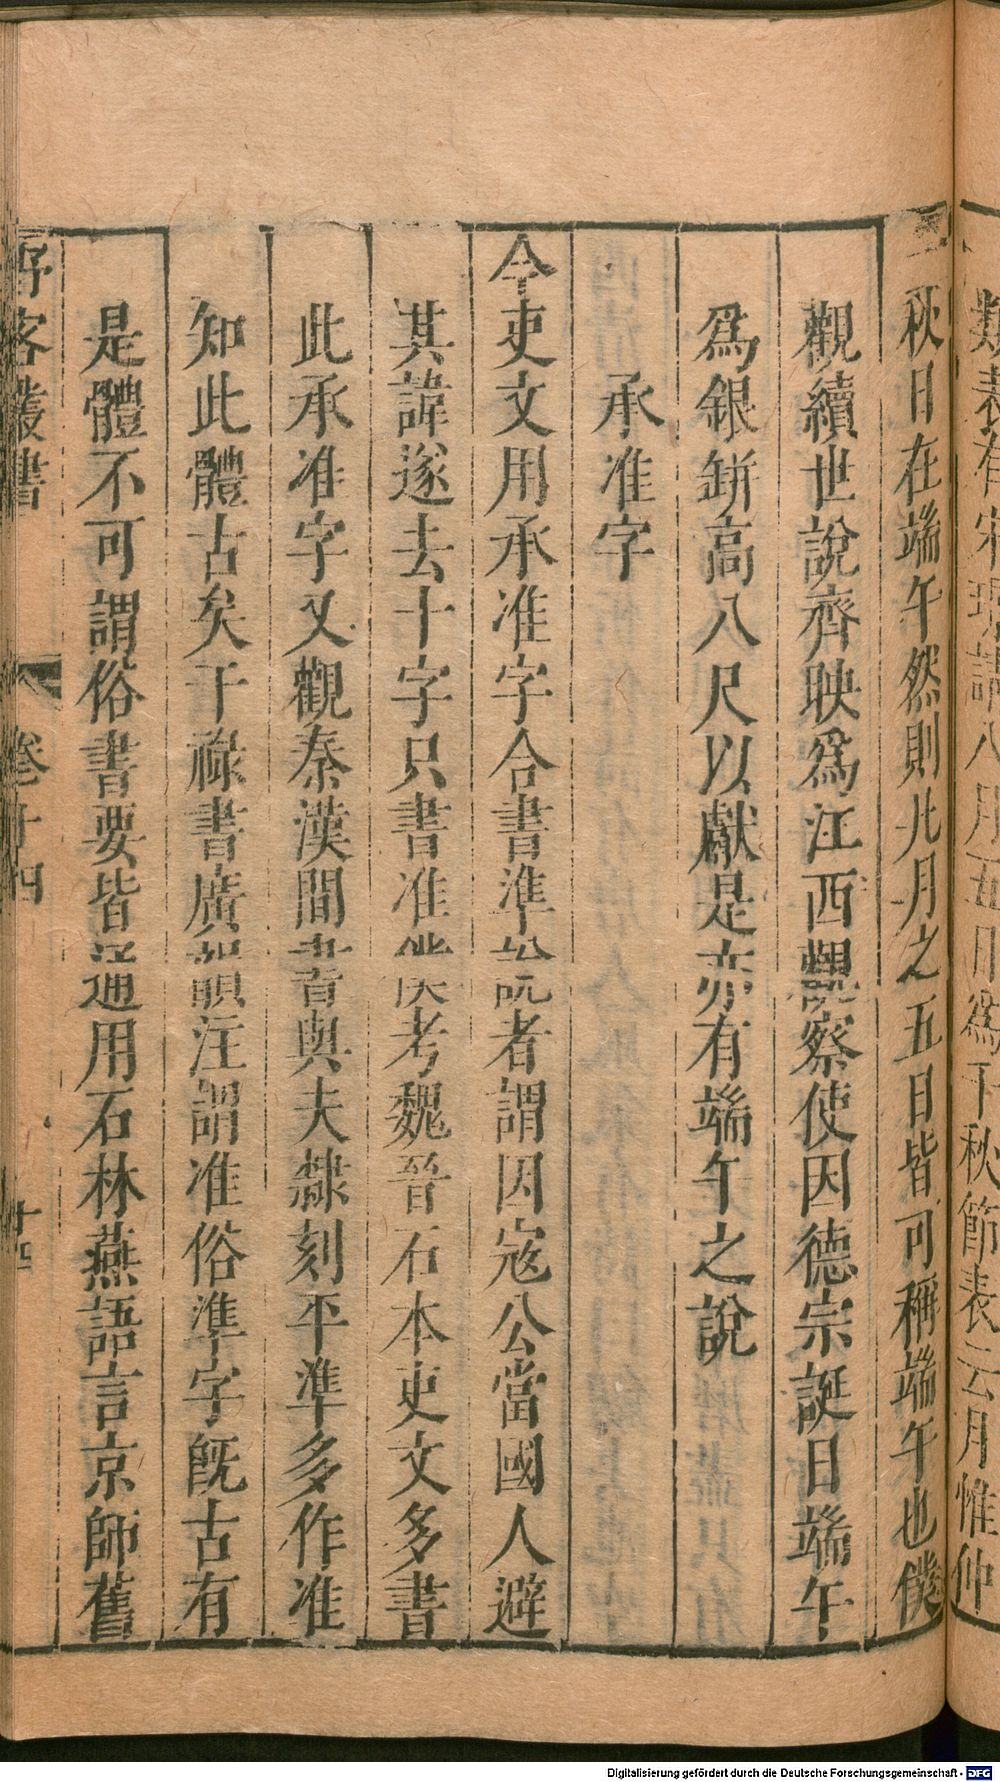 類表有宋璟請八月五日爲千秋節表云月惟仲
秋日在端午然則凡月之五日皆可稱端午也僕
觀續世說齊映爲江西觀察使因德宗誕日端午
爲銀缾高八尺以獻是亦有端午之說
承准字
今吏文用承准字合書準說者謂因宼公當國人避
其諱遂去十字只書准僕考魏晉石本吏文多書
此承准字又觀秦漢間書與夫隸刻平準多作准
知此體古矣干祿書廣韻注謂准俗準字旣古有
是體不可謂俗書要皆通用石林燕語言京師舊
野客叢書
卷十四
十四
Digitalisierung gefördert durch die Deutsche Forschungsgemeinschaft - DFG